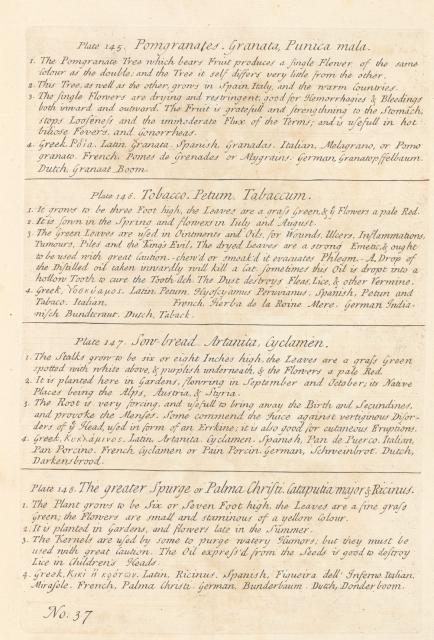 Plate 145. Pomgranates. Granata, Punica mala.
1. The Pomgranate Tree which bears Fruit produces a single Flower of the same
Colour as the double; and the Tree it self differs very little from the other.
2. This Tree, as well as the other, grows in Spain, Italy, and the warm Countries.
3. The single Flowers are drying and restringent, good for Hemorrhogies & Bleedings
both inward and outward. The Fruit is gratefull and strengthning to the Stomach,
stops Looseness and the immoderate Flux of the Terms; and is usefull in hot
biliose Fevers, and Gonorrheas.
4. Greek, Ρόϊα. Latin, Granata. Spanish, Granadas. Italian, Melagrano, or Pomo
granato. French, Pomes de Grenades or Mygrains. German, Granatopffelbaum.
Dutch, Granaat Boom.
Plate 146. Tobacco. Petum, Tabaccum.
1. It grows to be three Foot high, the Leaves are a grass Green, & yᵉ Flowers a pale Red.
2. It is sown in the Spring and flowers in July and August.
3. The Green Leaves are used in Ointments and Oils, for Wounds, Ulcers, Inflammations,
Tumours, Piles and the King's Evil. The dryed Leaves are a strong Emetic, & ought
to be used with great caution - chew'd or smoak'd it evacuates Phlegm. - A Drop of
the Distilled oil taken inwardly will kill a Cat, sometimes this Oil is dropt into a
hollow Tooth to cure the Tooth Ach. The Dust destroys Fleas, Lice, & other Vermine.
4. Greek, Υοσκύαμος. Latin, Petum, Hyoscyamus Peruvianus. Spanish, Petun and
Tabaco. Italian, French, Herba de la Roine Mere. German, India-
nisch Bundtraut. Dutch, Taback.
Plate 147. Sow-bread. Artanita, Cyclamen.
1. The Stalks grow to be six or eight Inches high, the Leaves are a grass Green
spotted with white above, & purplish underneath, & the Flowers a pale Red.
2. It is planted here in Gardens, flowring in September and October; its Native
Places being the Alps, Austria, & Styria.
3. The Root is very forcing, and usefull to bring away the Birth and Secundines,
and provoke the Menses. Some commend the Juice against vertiginous Disor-
ders of yᵉ Head, used in form of an Errhine; it is also good for cutaneous Eruptions.
4. Greek, Κυκλάμινος. Latin, Artanita, Cyclamen. Spanish, Pan de Puerco. Italian,
Pan Porcino. French, Cyclamen or Pain Porcin. German, Schweinbrot. Dutch,
Darkensbrood.
Plate 148. The greater Spurge or Palma Christi. Cataputia major & Ricinus.
1. The Plant grows to be Six or Seven Foot high, the Leaves are a fine grass
Green; the Flowers are small and staminous of a yellow Colour.
2. It is planted in Gardens, and flowers late in the Summer.
3. The Kernels are used by some to purge watery Humors; but they must be
used with great Caution. The Oil express'd from the Seeds is good to destroy
Lice in Children's Heads.
4. Greek, Κίκι ἢ κρότων. Latin, Ricinus. Spanish, Figueira dell' Inferno. Italian,
Mirasole. French, Palma Christi. German, Bunderbaum. Dutch, Donderboom.
No. 37